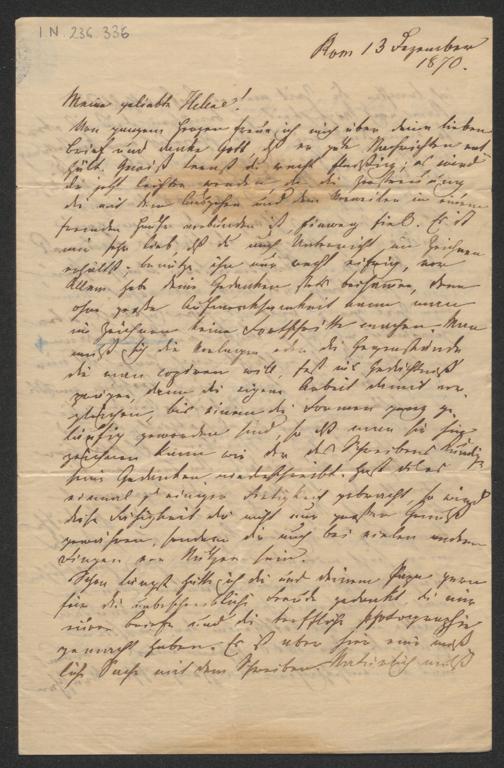 IN. 236.336
Rom 13 Dezember
1870.
Meine geliebte Helene!
Von ganzem Herzen freue ich mich über deinen lieben
Brief und danke Gott daß er gute Nachrichten ent
hält. Gewiß lernst du recht fleißig, es wird
dir jetzt leichter werden da die Zerstreuung
die mit dem Ausgehen und dem Verweilen in einem
fremden Hause verbunden ist, hinweg fiel. Es ist
mir sehr lieb daß du auch Unterricht im Zeichnen
erhältst; benütze ihn nur recht eifrig, vor
Allem habe deine Gedanken stets beisammen, denn
ohne große Aufmerksamkeit kann man
im Zeichnen keine Fortschritte machen. Man
muß sich die Vorlagen oder die Gegenstände
die man copiren will, fest ins Gedächtniß
prägen, dann die eigene Arbeit damit ver
gleichen, bis einem die Formen ganz ge
läufig geworden sind, so daß man sie hin
zeichnen kann wie der des Schreibens Kundige
seine Gedanken niederschreibt. Hast du es
einmal zu einiger Fertigkeit gebracht so wird
diese Fähigkeit dir nicht nur großen Genuß
gewähren, sondern dir auch bei vielen andern
Dingen von Nutzen sein.
Schon längst hätte ich dir und deinem Papa gern
für die unbeschreibliche Freude gedankt die mir
eure Briefe und die treffliche Photographie
gemacht haben. Es ist aber hier eine miß
liche Sache mit dem Schreiben. Natürlich muß